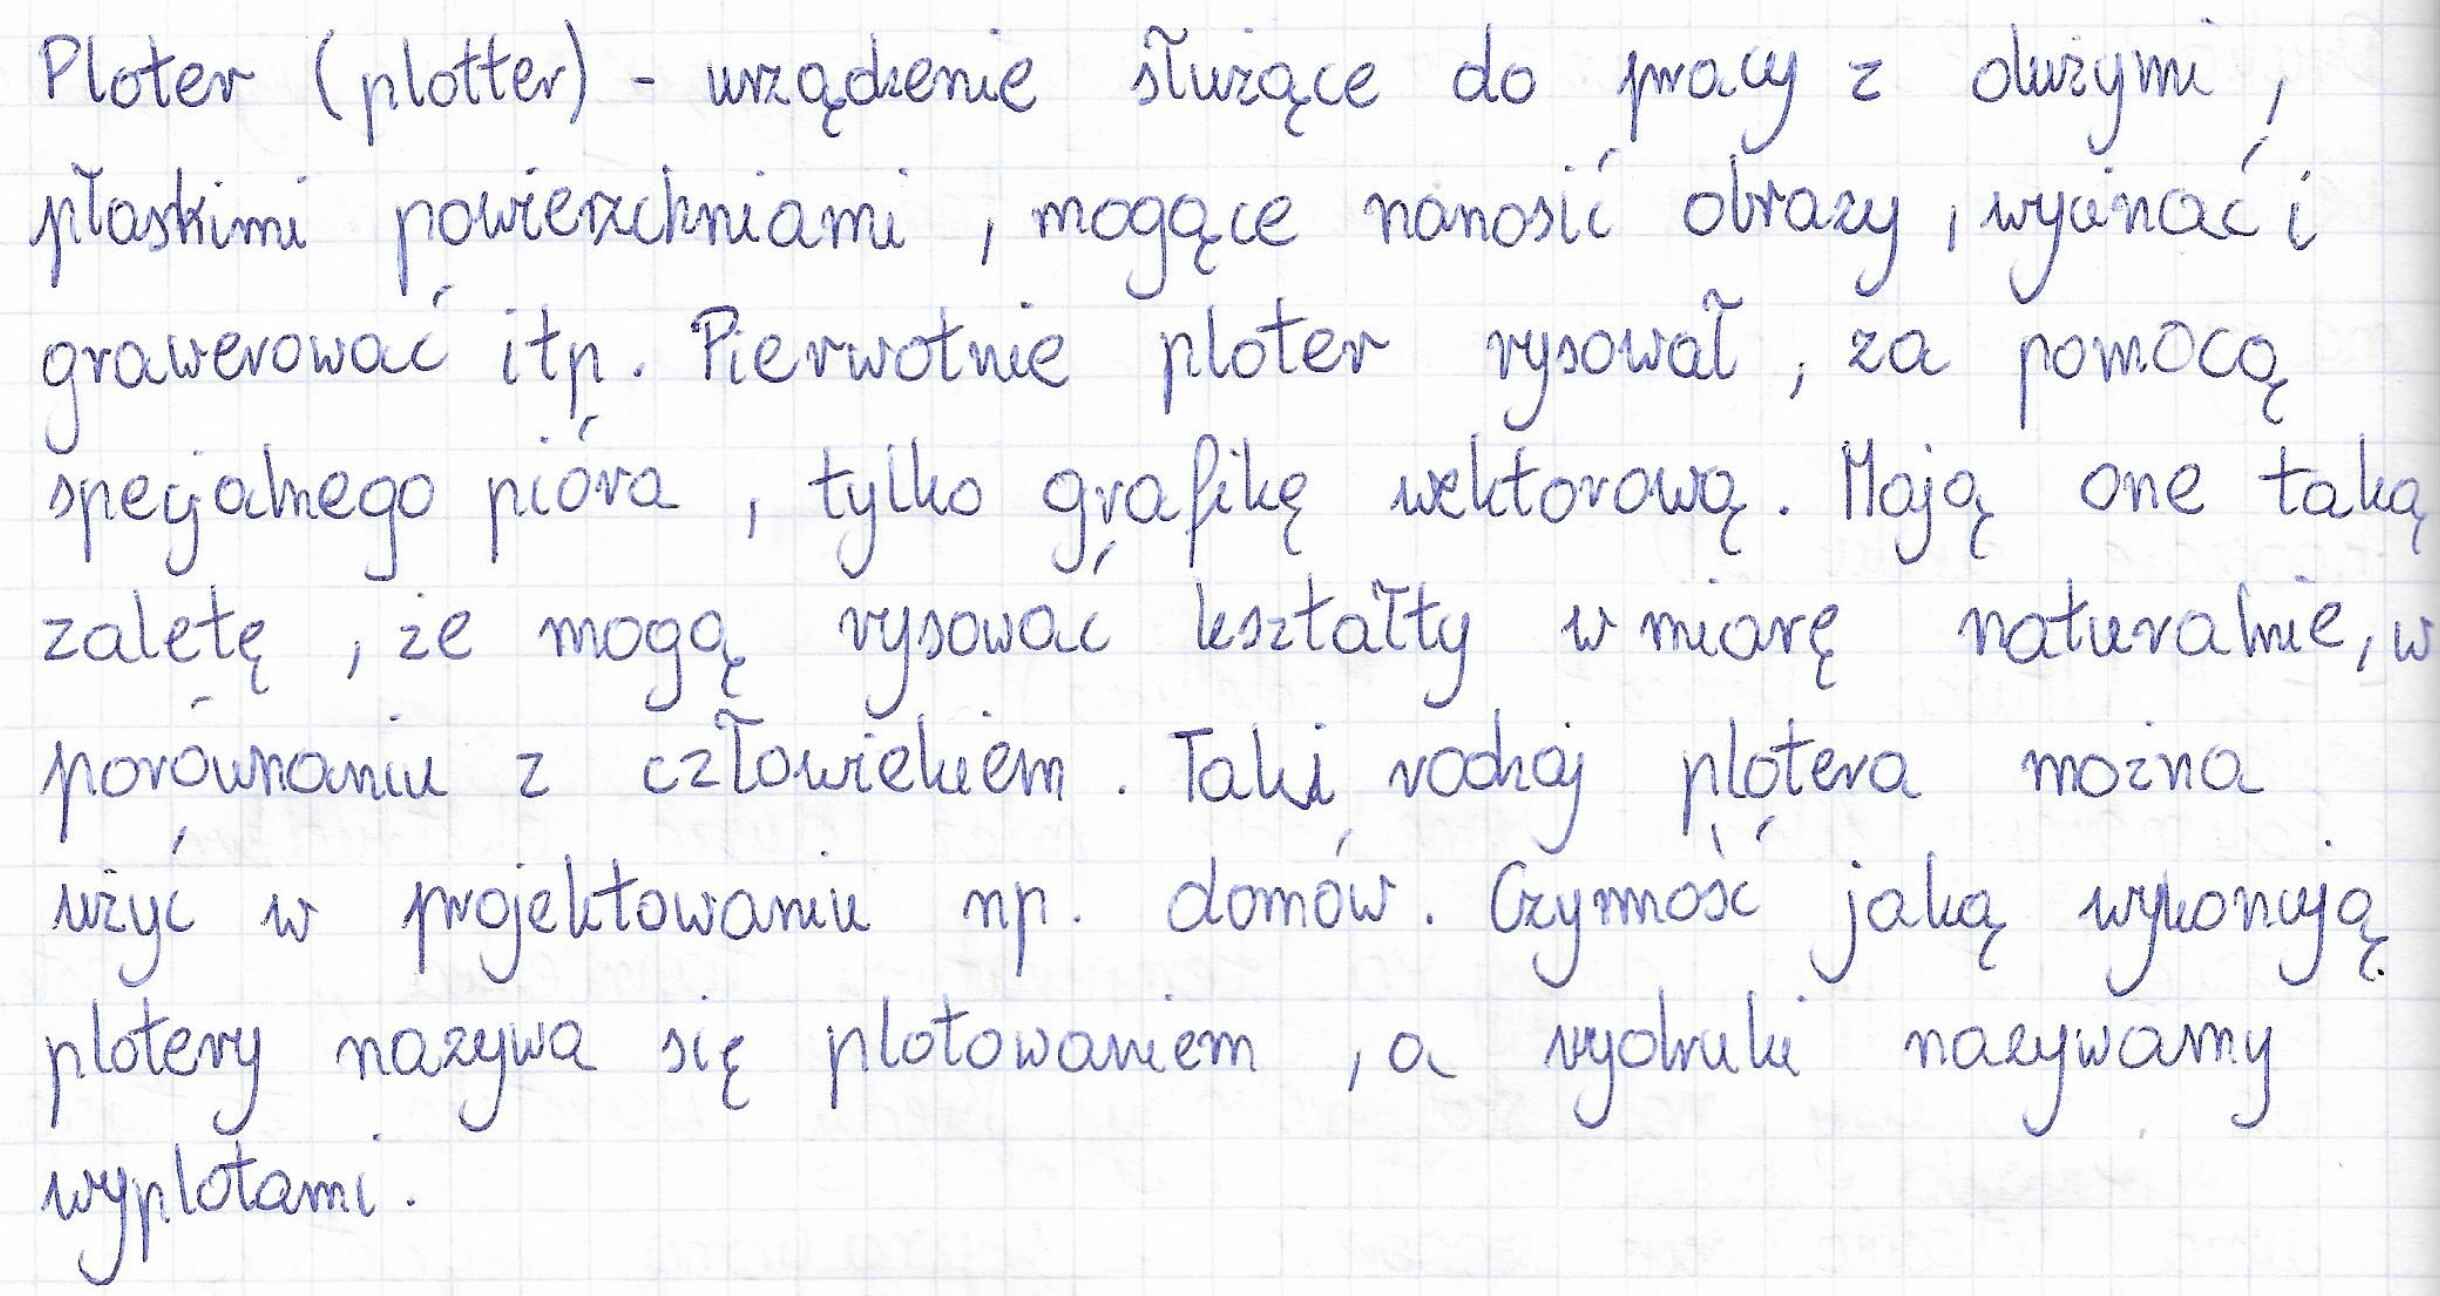 Ploter (plotter) - urządzenie służące do pracy z dużymi,
płaskimi powierzchniami, mogące nanosić obrazy, wycinać i
grawerować itp. Pierwotnie ploter rysował, za pomocą
specjalnego pióra, tylko grafikę wektorową. Mają one taką
zaletę, że mogą rysować kształty w miarę naturalnie, w
porównaniu z człowiekiem. Taki rodzaj plotera można
użyć w projektowaniu np. domów. Czynność jaką wykonują
plotery nazywa się plotowaniem, a wydruki nazywamy
wyplotami.